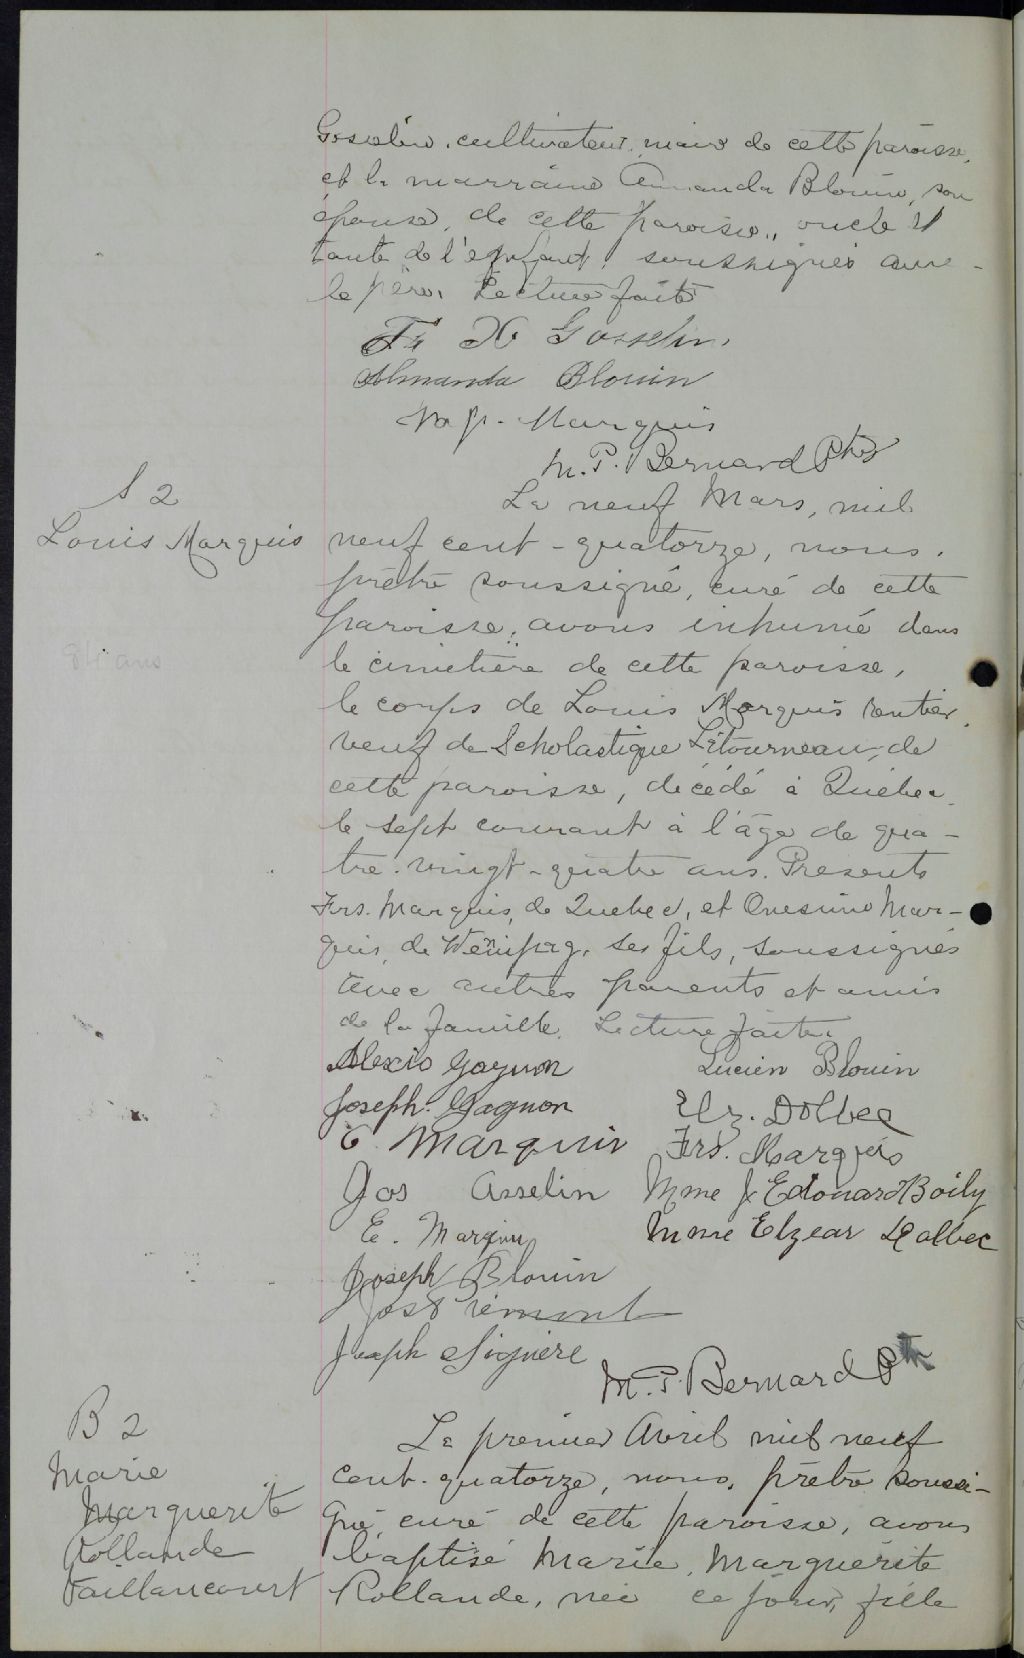 Gosselin, cultivateur, maire de cette paroisse,
et la marraine Amanda Blouin, son
épouse, de cette paroisse, oncle et
tante de l'enfant, soussignés avec
le père. Lecture faite
F. X. Gosselin.
Almanda Blouin
Nap. Marquis
M. P. Bernard Ptre
S 2
Louis Marquis
84 ans
Le neuf Mars, mil
neuf cent-quatorze, nous,
prêtre soussigné, curé de cette
paroisse, avons inhumé dans
le cimetière de cette paroisse,
le corps de Louis Marquis rentier,
veuf de Scholastique Létourneau, de
cette paroisse, décédé à Québec
le sept courant à l'âge de qua-
tre-vingt-quatre ans. Présents
Frs. Marquis, de Quebec, et Onesime Mar-
quis, de Wennipeg, ses fils, soussignés
avec autres parents et amis
de la famille. Lecture faite.
Alexis Gagnon Lucien Blouin
Joseph Gagnon Elz. Dolbec
O. Marquis Frs. Marquis
Jos Asselin Mme J Edouard Boily
E. Marquis Mme Elzear Dolbec
Joseph Blouin
Jos Prémont
Joseph
M. P. Bernard Ptre
B 2
Marie
Marguerite
Rollande
Vaillancourt
Le premier Avril mil neuf
cent-quatorze, nous, prêtre soussi-
gné, curé de cette paroisse, avons
baptisé Marie, Marguérite
Rollande, née ce jour, fille